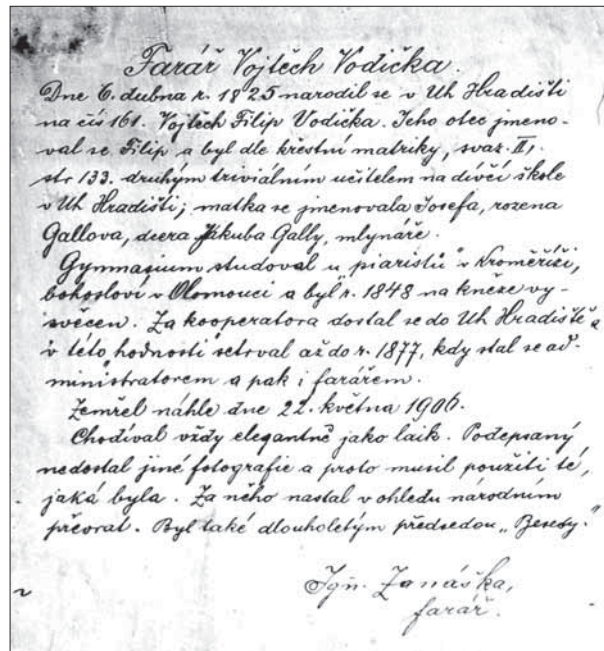 Farář Vojtěch Vodička.
Dne 6. dubna r. 1825 narodil se v Uh Hradišti
na čís 161. Vojtěch Filip Vodička. Jeho otec jmeno-
val se Filip a byl dle křestní matriky, svaz. II,
str 133. druhým triviálním učitelem na dívčí škole
v Uh Hradišti; matka se jmenovala Josefa, rozena
Gallova, dcera Jakuba Gally, mlynáře.
Gymnasium studoval u piaristů v Kroměříži,
bohosloví v Olomouci a byl r. 1848 na kněze vy-
svěcen. Za kooperatora dostal se do Uh Hradiště a
v této hodnosti setrval až do r. 1877, kdy stal se ad-
ministratorem a pak i farářem.
Zemřel náhle dne 22. května 1906.
Chodíval vždy elegantně jako laik. Podepsaný
nedostal jiné fotografie a proto musil použíti té,
jaká byla. Za něho nastal v ohledu národním
převrat. Byl také dlouholetým předsedou „Besedy."
Ign. Zaváška,
farář.